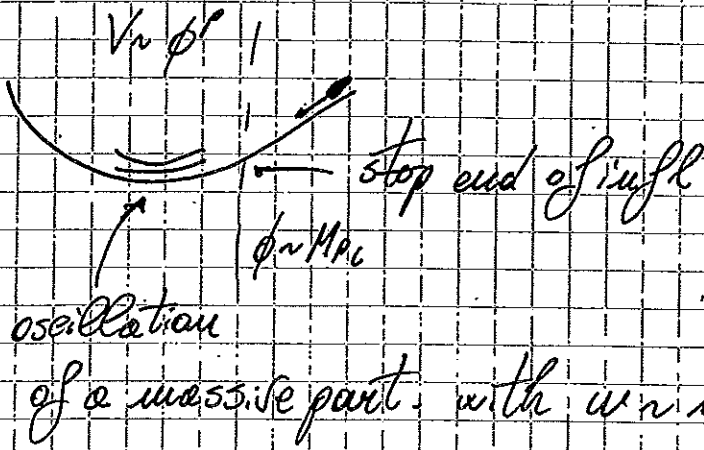 V ~ φᵖ
stop end of infl
φ ~ M_PL
oscillation
of a massive part. with w ~